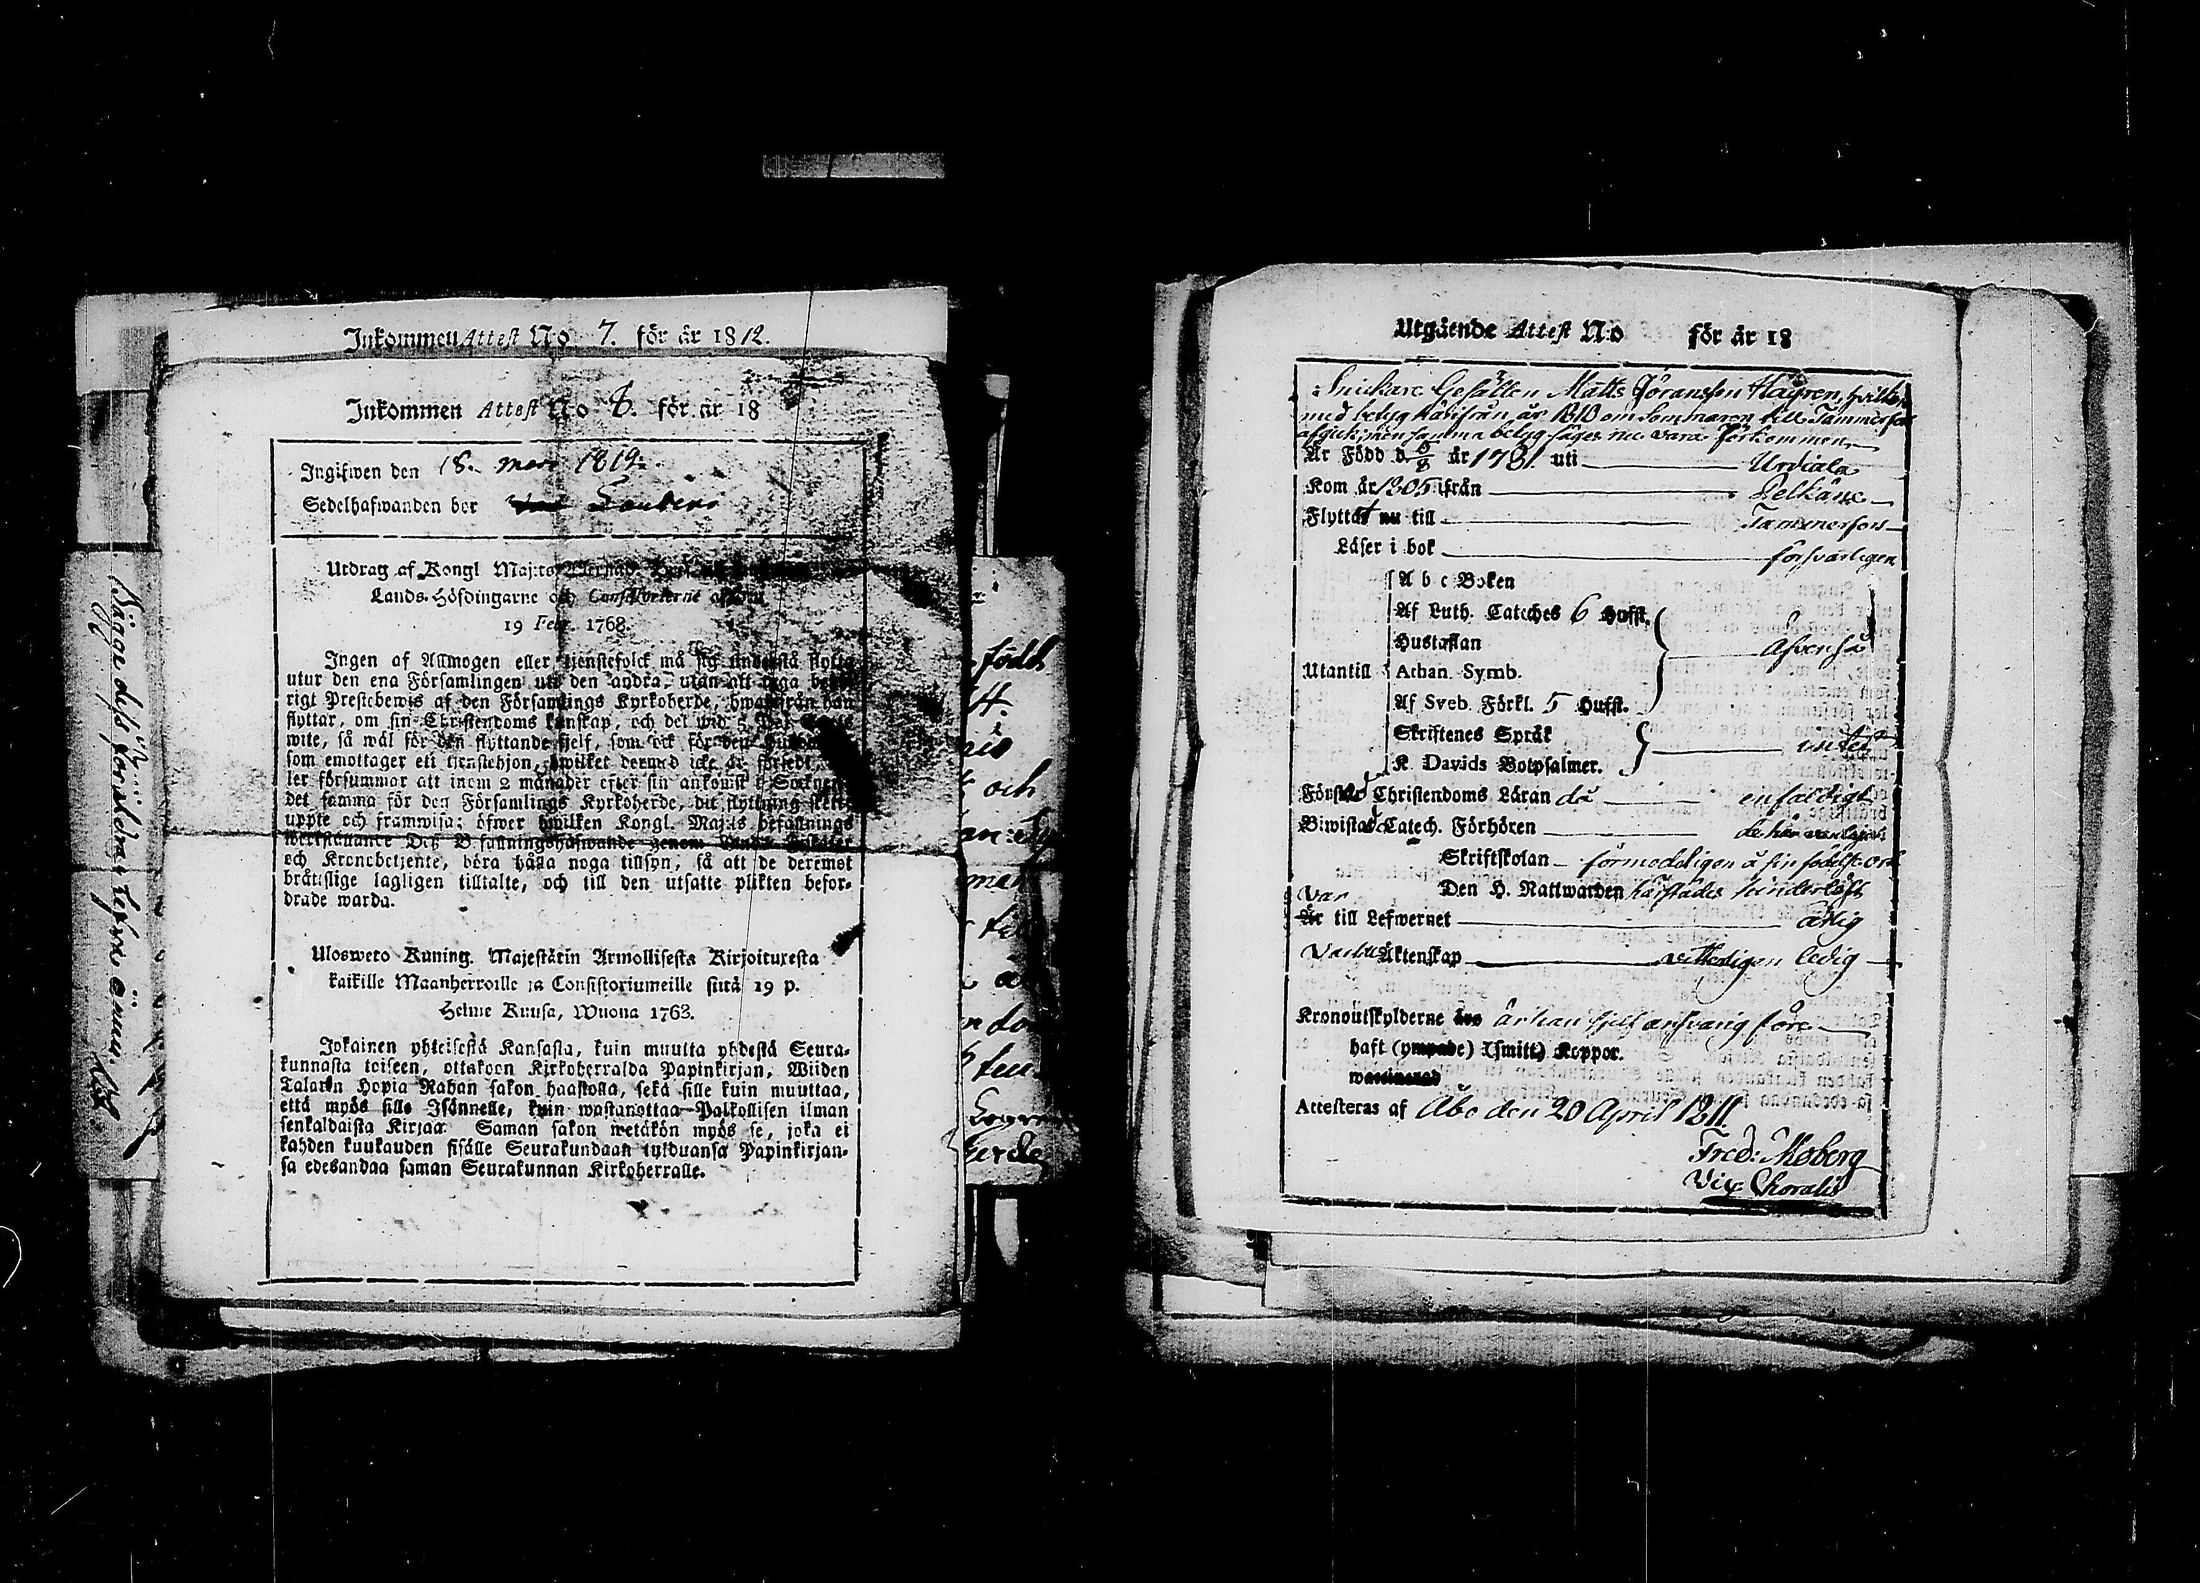 Inkommen Attest No 7. för år 1812.
Inkommen Attest No 8. för år 18
Ingifwen den 18. Mars 1812.
Sedelhafwanden bor
Utdrag af Kongl Maj:ts
Lands-Höfdingarne och Consistorierne af den
19 Febr. 1768.
Ingen af Allmogen eller tjenstefolck må sig understå flytta
utur den ena Församlingen uti den andra, utan att taga
rigt Prestebewis af den Församlings Kyrkoherde, hwarifrån han
flyttar, om sin Christendoms kunskap, och det wid 5
wite, så wäl för den flyttande sjelf, som ock för den
som emottager ett tjenstehjon, hwilket dermed icke är försedt,
ler försummar att inom 2 månader efter sin ankomst i Socknen
det samma för den Församlings Kyrkoherde, dit flyttning skett,
uppte och framwisa; öfwer hwilken Kongl. Maj:ts befallnings
werkställande Deß Befallningshafwande genom
och Kronobetjente, böra hålla noga tillsyn, så att de deremot
bråtslige lagligen tilltalte, och till den utsatte plikten befor-
drade warda.
Ulosweto Kuning. Majestätin Armollisesta Kirjoituxesta
kaikille Maanherroille ja Consistoriumeille siitä 19 p.
Helme Kuusa, Wuona 1768.
Jokainen yhteisestä Kansasta, kuin muutta yhdestä Seura-
kunnasta toiseen, ottakoon Kirkoherralda Papinkirjan, Wiiden
Talarin Hopia Rahan sakon haastolla, sekä sille kuin muuttaa,
että myös sille Isännelle, kuin wastanottaa Palkollisen ilman
senkaldaista Kirjaa Saman sakon wetäkön myös se, joka ei
kahden kuukauden sisälle Seurakundaan tulduansa Papinkirjan-
sa edesandaa saman Seurakunnan Kirkoherralle.
Bägge dess föräldrar lefva ännu.
födt
och
Utgående Attest No för år 18
Snickare Gesällen Matts Jöransson Hagren, hvilken
med betyg härifrån år 1810 om Sommaren till Tammerfors
afgick, men samma betyg säges nu vara förkommen,
Är Född d. 5/8 år 1781. uti Urdiala
Kom år 1805 ifrån Pelkäne
Flyttat nu till Tammerfors
Läser i bok försvarligen
A b c Boken
Af Luth. Cateches 6 Hufst.
Hustaflan
Utantill Athan. Symb. Äfvenså
Af Sveb. Förkl. 5 Hufst.
Skriftenes Språk
K. Davids Botpsalmer. intet
Förstod Christendoms Läran då enfaldigt
Biwistat Catech. Förhören
Skriftskolan förmodeligen å sin födelseort
Den H. Nattwarden härstädes hinderlöst
Var
Är till Lefwernet ärlig
Äktenskap vetterligen ledig
Kronoutskylderne är han sjelf ansvarig före
haft (ympade) (smitt) Koppor.
waccinerad
Attesteras af Åbo den 20 April 1811.
Fred: Moberg
Vix Choralis